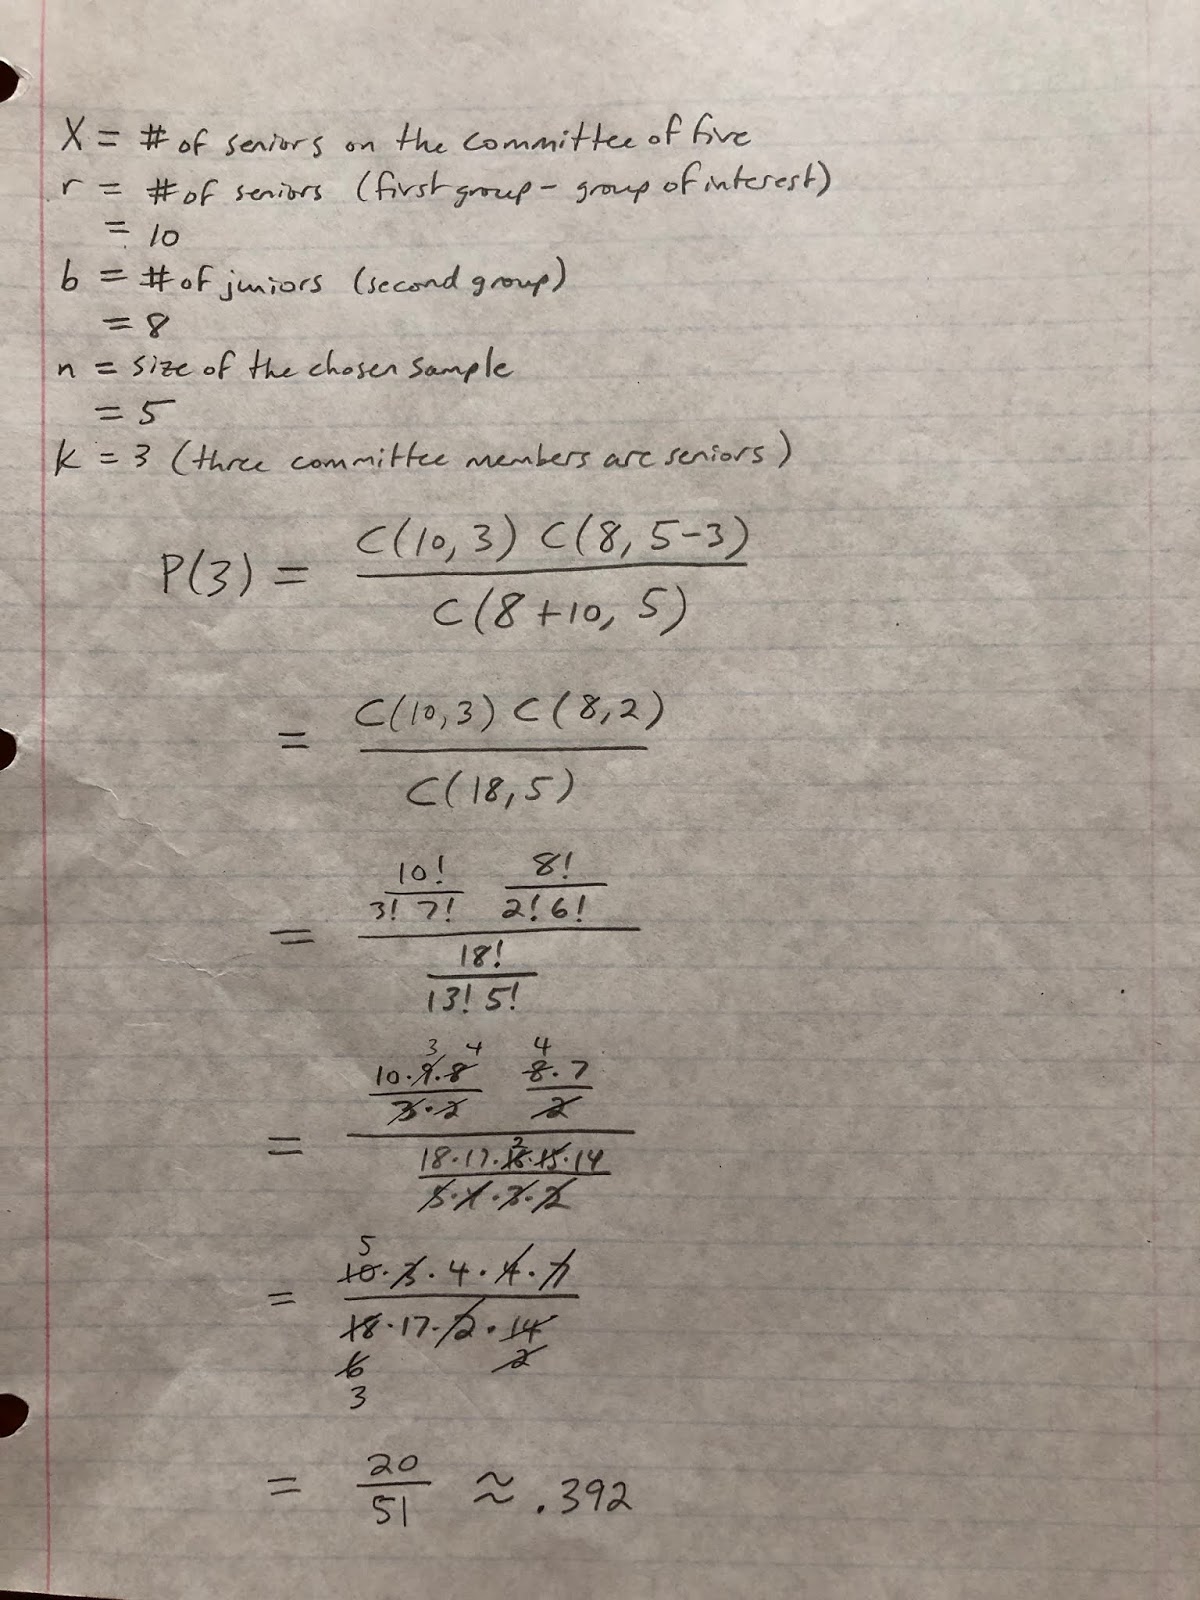 X = # of seniors on the committee of five
r = # of seniors (first group - group of interest)
= 10
b = # of juniors (second group)
= 8
n = size of the chosen sample
= 5
k = 3 (three committee members are seniors)
P(3) = C(10,3) C(8, 5-3)
C(8+10, 5)
= C(10,3) C(8,2)
C(18,5)
10! 8!
3! 7! 2! 6!
=
18!
13! 5!
3 4 4
10·9·8 8·7
3·2 2
=
2
18·17·16·15·14
5·4·3·2
5
= 10·3·4·4·7
18·17·2·14
6 2
3
= 20/51 ≈ .392